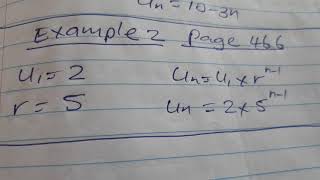 Un = 10-3n
Example 2 Page 466
U₁ = 2 Uₙ = U₁ × rⁿ⁻¹
r = 5 Uₙ = 2 × 5ⁿ⁻¹